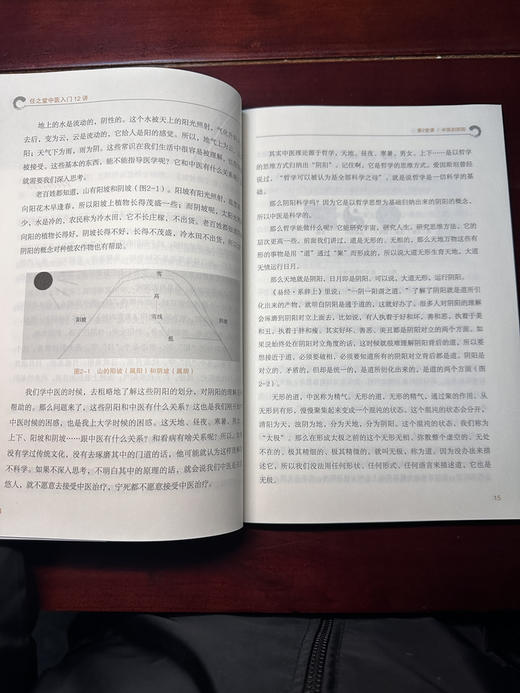 任之堂中医入门12讲
地上的水是流动的，阴性的。这个水被天上的阳光照射，气化升
去后，变为云，云是流动的，它给人是阳的感觉。所以，地气上为
阳；天气下为雨，雨则为阴。这些常识在我们生活中很容易被理解，
被接受，这些基本的东西，能不能指导医学呢？它和中医有什么关系
就需要我们深入思考。
老百姓都知道，山有阳坡和阴坡（图2-1）。阳坡有阳光照射，
向阳花木早逢春，所以阳坡上植物长得茂盛一些；而阴坡呢，太阳光
少，水是冷的，农民称为冷水田，它不长庄稼、不出货。老百姓都知
向阳的植物长得好，阴坡长得不好，长得不茂盛，冷水田不出货，
阴阳的概念对种植农作物也有帮助。
雪
高
阳坡
阴坡
图2-1 山的阳坡（属阳）和阴坡（属阴）
我们学中医的时候，去粗略地了解这些阴阳的划分，对阴阳的理解
帮助的。那么问题来了，这些阴阳和中医有什么关系？这也是我们刚
中医时候的困惑，也是我上大学时候的困惑。这天地、昼夜、寒暑、男
上下、阳坡和阴坡……跟中医有什么关系？和看病有啥关系呢？我们
没有学过传统文化，没有去琢磨其中的门道的话，他可能就认为这样
不科学。如果不深入思考，不明白其中的原理的话，就会说我们中医
悠人，就不愿意去接受中医治疗，宁死都不愿意接受中医治疗。
第2堂课 / 中医的阴阳
其实中医理论源于哲学，天地、昼夜、寒暑、男女、上下……是以哲学
的思维方式归纳出“阴阳”，记住啊，它是哲学的思维方式。爱因斯坦曾经
说过，“哲学可以被认为是全部科学之母”，就是说哲学是一切科学的基
础。
那么阴阳科学吗？因为它是以哲学思想为基础归纳出来的阴阳的概念，
所以中医是科学的。
那么哲学能做什么呢？它能研究宇宙，研究人生，研究思想方法，它的
层次更高一些，前面我们讲过，道是无形的、无相的，那么天地万物这些有
形的事物是用“道”通过“聚”而形成的，所以说大道无形生育天地，大道
无情运行日月。
那么天地就是阴阳，日月即是阴阳，可以说，大道无形，运行阴阳。
《易经·系辞上》里说：“一阴一阳谓之道。”了解了阴阳就是道所引
化出来的产物，就明白阴阳是通于道的，这就好办了。很多人对阴阳的理解
会琢磨到阴阳对立上面去，比如说，有人执着于好和坏、善和恶，执着于美
和丑，执着于胖和瘦。其实好坏、善恶、美丑都是阴阳对立的两个方面。如
果说始终处在阴阳对立角度的话，这时候就很难理解阴阳背后的道，所以要
想接近于道，必须要破相，必须要知道所有的阴阳对立背后都是道。阴阳是
对立的、矛盾的，但却是统一的，是道所衍化出来的，是道的两个方面（图
2-2）。
无形的道，中医称为精气。无形的道、无形的精气，通过聚的作用，从
无形到有形，慢慢聚集起来变成一个混沌的状态。这个混沌的状态会分开，
清阳为天，浊阴为地，分为天地，分为阴阳。这个混沌的状态，我们称为
“太极”。那么在形成太极之前的这个无形无相、弥散整个虚空的、无处
不在的、极其精细的、极其精准的，就叫无极，称为道。因为没办法来描
述它，所以我们没法用任何形状、任何形式、任何语言来描述道，它也是
无极。
15